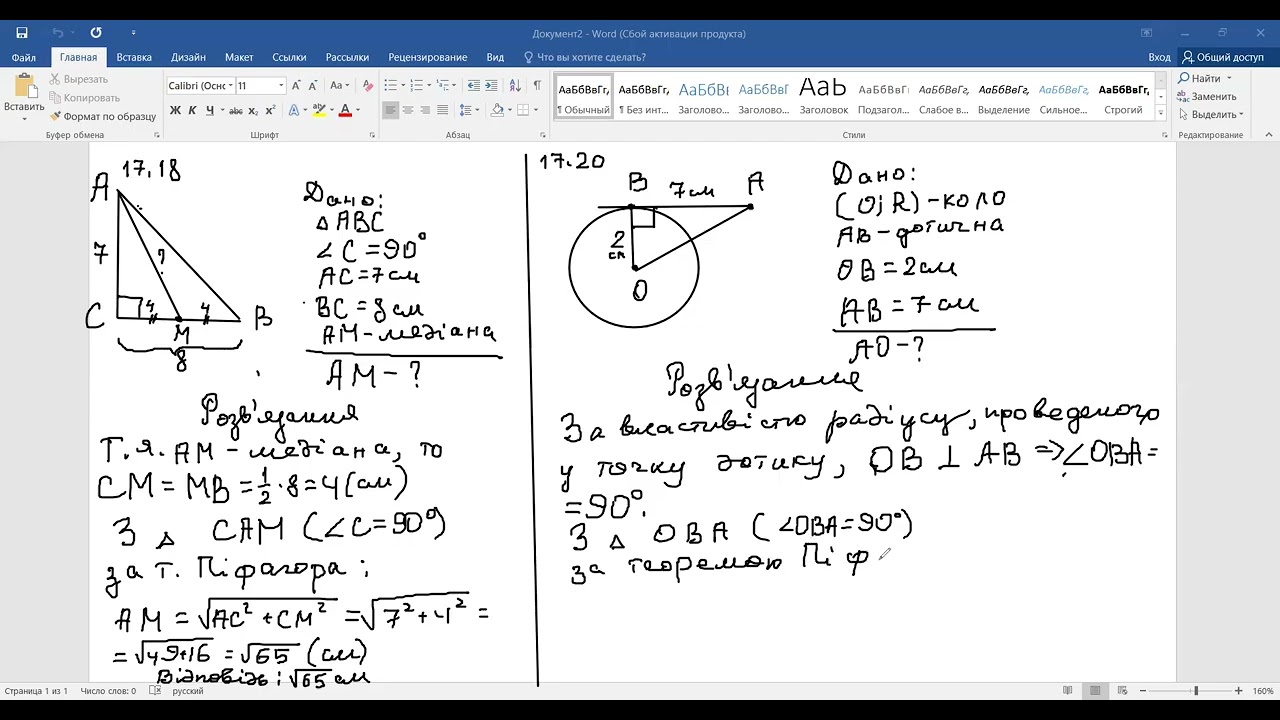 Документ2 - Word (Сбой активации продукта)
Файл Главная Вставка Дизайн Макет Ссылки Рассылки Рецензирование Вид Что вы хотите сделать? Вход Общий доступ
Вставить
Вырезать
Копировать
Формат по образцу
Буфер обмена
Calibri (Оснс 11
Ж К Ч abc x₂ x²
Шрифт
Абзац
АаБбВвГг, АаБбВвГг, АаБбВв АаБбВвГ АаБ АаБбВвГ АаБбВвГг АаБбВвГг АаБбВвГг АаБбВвГг,
¶ Обычный ¶ Без инт... Заголово... Заголово... Заголовок Подзагол... Слабое в... Выделение Сильное... Строгий
Стили
Найти
Заменить
Выделить
Редактирование
17.18
A
7
?
C
4
4
M
B
8
Дано:
△ABC
∠C = 90°
AC = 7 см
BC = 8 см
AM - медіана
AM - ?
Розв'язання
Т.я. AM - медіана, то
CM = MB = 1/2 · 8 = 4 (см)
З △ CAM (∠C = 90°)
за т. Піфагора:
AM = √AC² + CM² = √7² + 4² =
= √49+16 = √65 (см)
Відповідь: √65 см
17.20
B 7 см A
2 см
O
Дано:
(O; R) - коло
AB - дотична
OB = 2 см
AB = 7 см
AO - ?
Розв'язання
За властивістю радіусу, проведеного
у точку дотику, OB ⊥ AB => ∠OBA =
= 90°.
З △ OBA (∠OBA = 90°)
за теоремою Піф
Страница 1 из 1 Число слов: 0 русский 160%